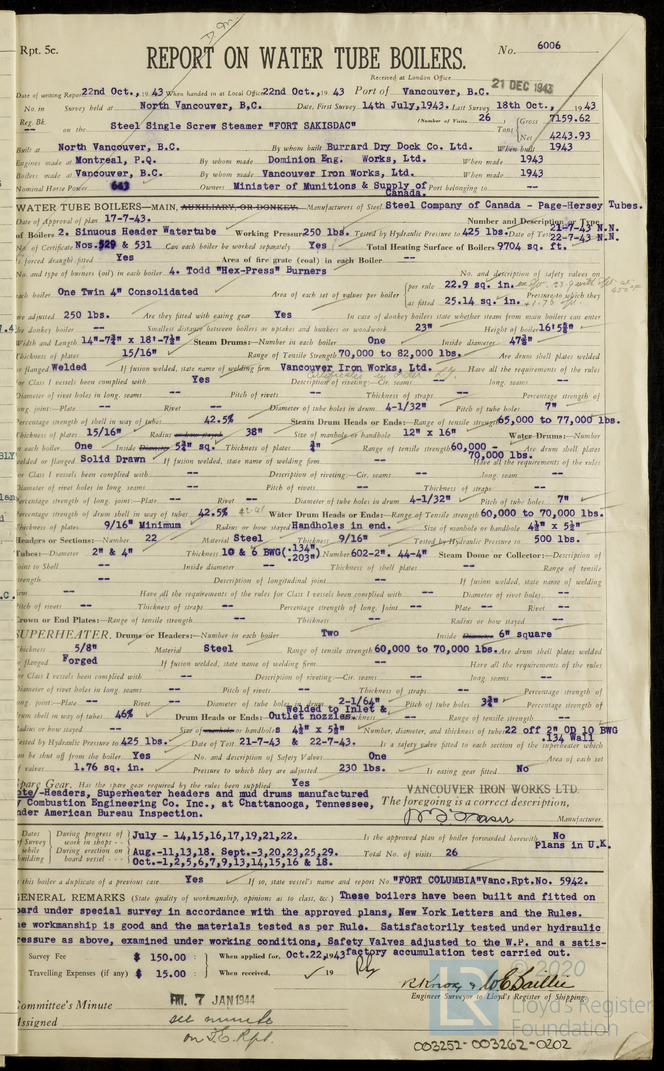 Rpt. 5c.
REPORT ON WATER TUBE BOILERS.
No. 6006
Received at London Office
21 DEC 1943
Date of writing Report 22nd Oct., 19 43 When handed in at Local Office 22nd Oct., 19 43 Port of Vancouver, B.C.
No. in Survey held at North Vancouver, B.C. Date, First Survey 14th July, 1943. Last Survey 18th Oct., 19 43
Reg. Bk. (Number of Visits 26 Gross 7159.62
-- on the Steel Single Screw Steamer "FORT SAKISDAC" Tons Net 4243.93
Built at North Vancouver, B.C. By whom built Burrard Dry Dock Co. Ltd. When built 1943
Engines made at Montreal, P.Q. By whom made Dominion Eng. Works, Ltd. When made 1943
Boilers made at Vancouver, B.C. By whom made Vancouver Iron Works, Ltd. When made 1943
Nominal Horse Power 643 Owners Minister of Munitions & Supply of Canada. Port belonging to --
WATER TUBE BOILERS—MAIN, AUXILIARY, OR DONKEY.—Manufacturers of Steel Steel Company of Canada - Page-Hersey Tubes.
Date of Approval of plan 17-7-43. Number and Description or Type
of Boilers 2. Sinuous Header Watertube Working Pressure 250 lbs. Tested by Hydraulic Pressure to 425 lbs. Date of Test 21-7-43 N.N. 22-7-43 N.N.
No. of Certificate Nos. 529 & 531 Can each boiler be worked separately Yes Total Heating Surface of Boilers 9704 sq. ft.
Is forced draught fitted Yes Area of fire grate (coal) in each Boiler --
No. and type of burners (oil) in each boiler 4. Todd "Hex-Press" Burners No. and description of safety valves on
each boiler One Twin 4" Consolidated Area of each set of valves per boiler per rule 22.9 sq. in. as fitted 25.14 sq. in. Pressure to which they
are adjusted 250 lbs. Are they fitted with easing gear Yes In case of donkey boilers state whether steam from main boilers can enter
the donkey boiler -- Smallest distance between boilers or uptakes and bunkers or woodwork 23" Height of boiler 16'5⅞"
Width and Length 14"-7¾" x 18'-7½" Steam Drums:—Number in each boiler One Inside diameter 47¾"
Thickness of plates 15/16" Range of Tensile Strength 70,000 to 82,000 lbs. Are drum shell plates welded
or flanged Welded If fusion welded, state name of welding firm Vancouver Iron Works, Ltd. Have all the requirements of the rules
for Class I vessels been complied with Yes Description of riveting:—Cir. seams -- long. seams --
Diameter of rivet holes in long. seams -- Pitch of rivets -- Thickness of straps -- Percentage strength of
long. joint:—Plate -- Rivet -- Diameter of tube holes in drum 4-1/32" Pitch of tube holes 7"
Percentage strength of shell in way of tubes 42.5% Steam Drum Heads or Ends:—Range of tensile strength 65,000 to 77,000 lbs.
Thickness of plates 15/16" Radius or how stayed 38" Size of manhole or handhole 12" x 16" Water Drums:—Number
in each boiler One Inside Diameter 5¾" sq. Thickness of plates ¾" Range of tensile strength 60,000 - 70,000 lbs. Are drum shell plates
welded or flanged Solid Drawn If fusion welded, state name of welding firm -- Have all the requirements of the rules
for Class I vessels been complied with -- Description of riveting:—Cir. seams -- long. seams --
Diameter of rivet holes in long. seams -- Pitch of rivets -- Thickness of straps --
Percentage strength of long. joint:—Plate -- Rivet -- Diameter of tube holes in drum 4-1/32" Pitch of tube holes 7"
Percentage strength of drum shell in way of tubes 42.5% Water Drum Heads or Ends:—Range of Tensile Strength 60,000 to 70,000 lbs.
Thickness of plates 9/16" Minimum Radius or how stayed Handholes in end. Size of manhole or handhole 4½" x 5½"
Headers or Sections:—Number 22 Material Steel Thickness 9/16" Tested by Hydraulic Pressure to 500 lbs.
Tubes:—Diameter 2" & 4" Thickness 10 & 6 BWG (.134") (.203") Number 602-2". 44-4" Steam Dome or Collector:—Description of
Joint to Shell -- Inside diameter -- Thickness of shell plates -- Range of tensile
strength -- Description of longitudinal joint -- If fusion welded, state name of welding
firm -- Have all the requirements of the rules for Class I vessels been complied with -- Diameter of rivet holes --
Pitch of rivets -- Thickness of straps -- Percentage strength of long. Joint -- Plate -- Rivet --
Crown or End Plates:—Range of tensile strength -- Thickness -- Radius or how stayed --
SUPERHEATER. Drums or Headers:—Number in each boiler Two Inside Diameter 6" square
Thickness 5/8" Material Steel Range of tensile strength 60,000 to 70,000 lbs. Are drum shell plates welded
or flanged Forged If fusion welded, state name of welding firm -- Have all the requirements of the rules
for Class I vessels been complied with -- Description of riveting:—Cir. seams -- long. seams --
Diameter of rivet holes in long. seams -- Pitch of rivets -- Thickness of straps -- Percentage strength of
long. joint:—Plate -- Rivet -- Diameter of tube holes in drum 2-1/64" Pitch of tube holes 3¾" Percentage strength of
drum shell in way of tubes 46% Drum Heads or Ends: Welded to Inlet & Outlet nozzles. Thickness -- Range of tensile strength --
Radius or how stayed -- Size of manhole or handholes 4½" x 5½" Number, diameter, and thickness of tubes 22 off 2" OD 10 BWG .134 Wall
Tested by Hydraulic Pressure to 425 lbs. Date of Test 21-7-43 & 22-7-43. Is a safety valve fitted to each section of the superheater which
can be shut off from the boiler Yes No. and description of Safety Valves One Area of each set
of valves 1.76 sq. in. Pressure to which they are adjusted 230 lbs. Is easing gear fitted No
Spare Gear. Has the spare gear required by the rules been supplied Yes
ote/-Headers, Superheater headers and mud drums manufactured VANCOUVER IRON WORKS LTD.
y Combustion Engineering Co. Inc., at Chattanooga, Tennessee, The foregoing is a correct description,
nder American Bureau Inspection. Manufacturer.
Dates of Survey while building
During progress of work in shops -- July - 14,15,16,17,19,21,22. Is the approved plan of boiler forwarded herewith No Plans in U.K.
During erection on board vessel --- Aug.-11,13,18. Sept.-3,20,23,25,29. Oct.-1,2,5,6,7,9,13,14,15,16 & 18. Total No. of visits 26
Is this boiler a duplicate of a previous case Yes If so, state vessel's name and report No. "FORT COLUMBIA" Vanc.Rpt.No. 5942.
GENERAL REMARKS (State quality of workmanship, opinions as to class, &c.) These boilers have been built and fitted on
oard under special survey in accordance with the approved plans, New York Letters and the Rules.
he workmanship is good and the materials tested as per Rule. Satisfactorily tested under hydraulic
ressure as above, examined under working conditions, Safety Valves adjusted to the W.P. and a satis-
factory accumulation test carried out.
Survey Fee $ 150.00 When applied for, Oct.22, 1943
Travelling Expenses (if any) $ 15.00 When received, 19
R. Knox & W.C. Baillie
Engineer Surveyor to Lloyd's Register of Shipping.
Committee's Minute FRI. 7 JAN 1944
Assigned see minute
on F.E. Rpt.
© 2020
LR
Lloyd's Register
Foundation
003252-003262-0202